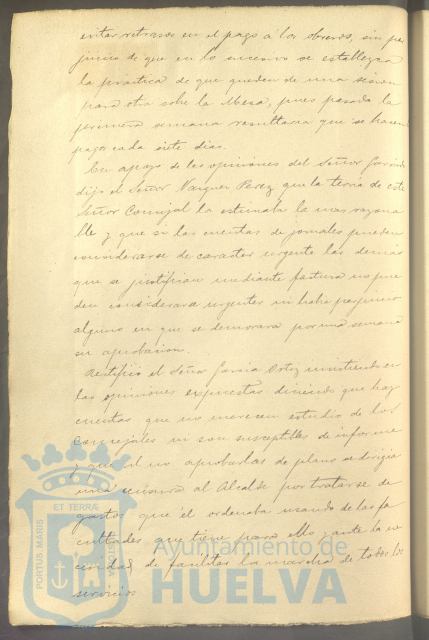 entar retraso en el pago a los obreros, sin per
juicio de que en lo sucesivo se establezca
la practica de que queden de una sesion
para otra sobre la Mesa, pues pasada la
primera semana resultaria que se hacen
pagos cada siete dias.
En apoyo de las opiniones del Señor Garcia
dijo el Señor Vazquez Perez que la teoria de este
Señor Concejal la estimaba la mas razona
ble y que si las cuentas de jornales pueden
considerarse de caracter urgente las demas
que se justifican mediante factura no pue
den considerarse urgentes ni habia perjuicio
alguno en que se demorara por una semana
su aprobacion.
Rectificó el Señor Garcia Ortiz insistiendo en
las opiniones expuestas diciendo que hay
cuentas que no merecen estudio de los
Concejales ni son susceptibles de informe
y que el no aprobarlas de plano se dirigia
una censura al Alcalde por tratarse de
gastos que el ordenaba usando de las fa
cultades que tiene para ello y ante la ne
cesidad de facilitar la marcha de todos los
servicios
PORTUS MARIS
ET TERRÆ
Ayuntamiento de
HUELVA